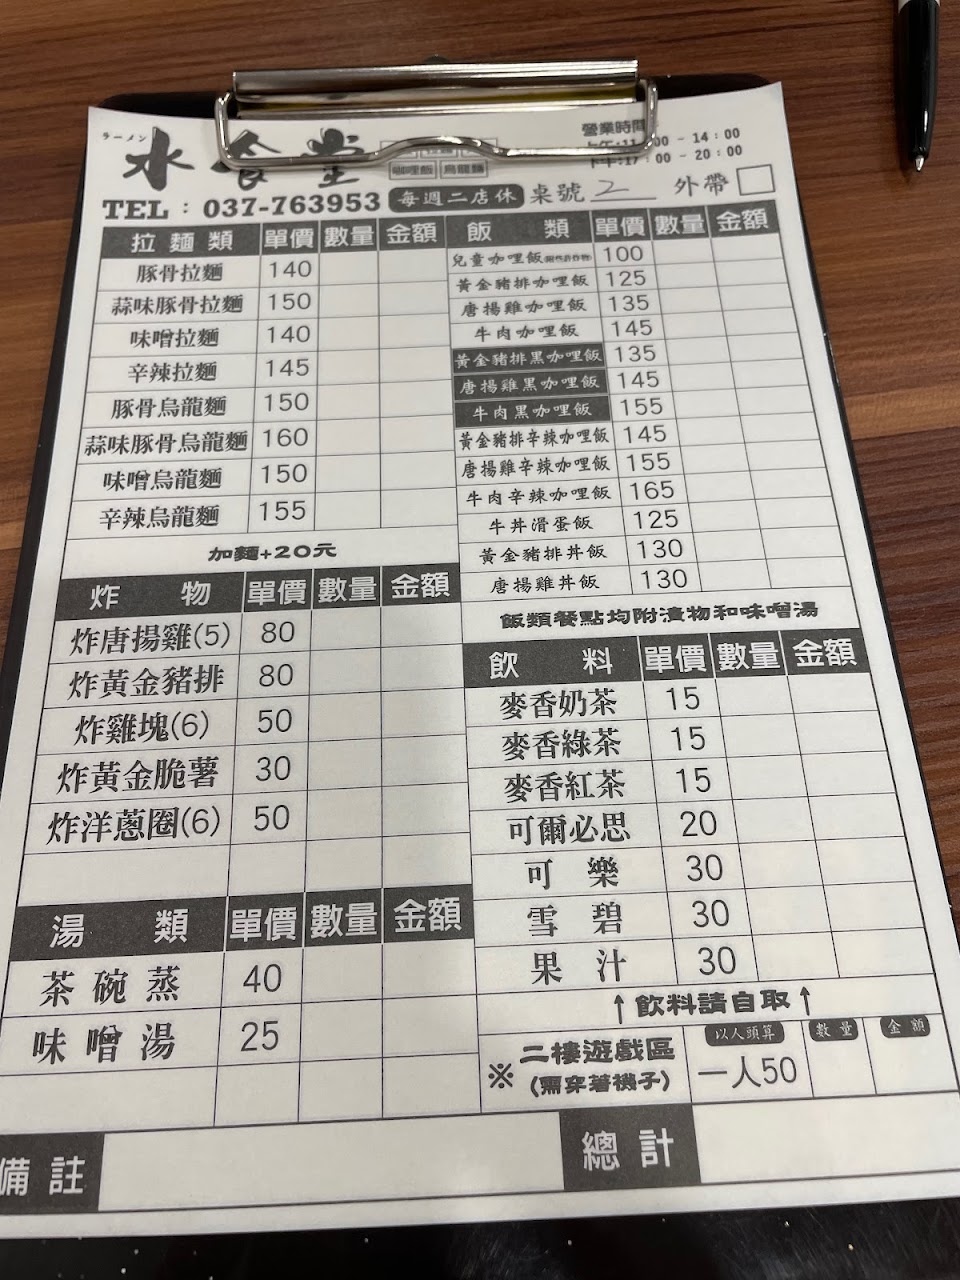 ラーメン
水食堂
咖哩飯 烏龍麵
營業時間
:00 - 14:00
17:00 - 20:00
TEL：037-763953 每週二店休 桌號 2 外帶
拉麵類 單價 數量 金額
豚骨拉麵 140
蒜味豚骨拉麵 150
味噌拉麵 140
辛辣拉麵 145
豚骨烏龍麵 150
蒜味豚骨烏龍麵 160
味噌烏龍麵 150
辛辣烏龍麵 155
加麵+20元
炸物 單價 數量 金額
炸唐揚雞(5) 80
炸黃金豬排 80
炸雞塊(6) 50
炸黃金脆薯 30
炸洋蔥圈(6) 50
湯類 單價 數量 金額
茶碗蒸 40
味噌湯 25
飯類 單價 數量 金額
兒童咖哩飯 100
黃金豬排咖哩飯 125
唐揚雞咖哩飯 135
牛肉咖哩飯 145
黃金豬排黑咖哩飯 135
唐揚雞黑咖哩飯 145
牛肉黑咖哩飯 155
黃金豬排辛辣咖哩飯 145
唐揚雞辛辣咖哩飯 155
牛肉辛辣咖哩飯 165
牛丼滑蛋飯 125
黃金豬排丼飯 130
唐揚雞丼飯 130
飯類餐點均附漬物和味噌湯
飲料 單價 數量 金額
麥香奶茶 15
麥香綠茶 15
麥香紅茶 15
可爾必思 20
可樂 30
雪碧 30
果汁 30
↑飲料請自取↑
※ 二樓遊戲區 以人頭算 數量 金額
(需穿著襪子) 一人50
備註 總計